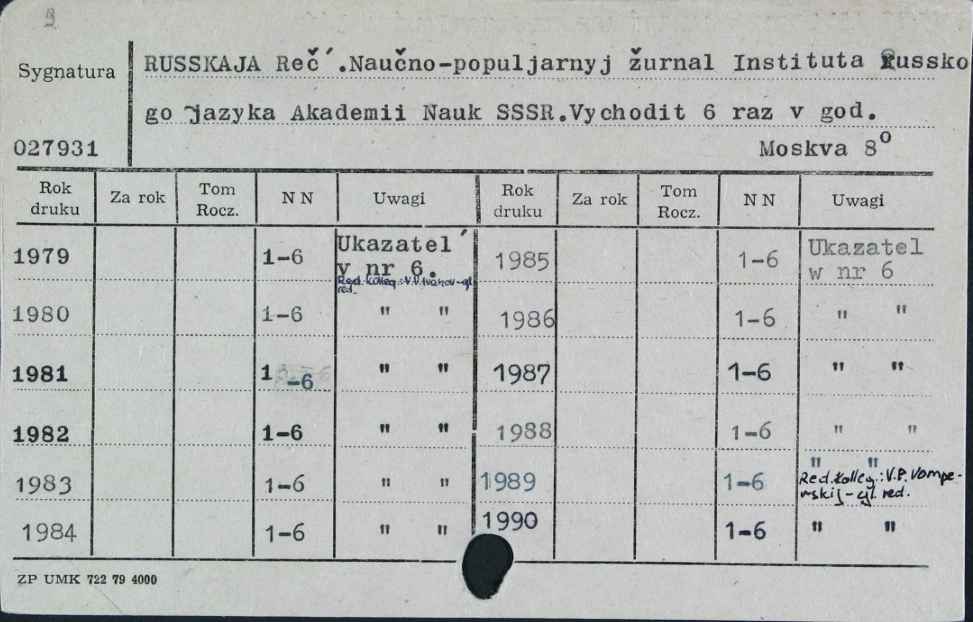 9
Sygnatura
RUSSKAJA Reč´.Naučno-populjarnyj žurnal Instituta Russko
go jazyka Akademii Nauk SSSR.Vychodit 6 raz v god.
027931
Moskva 8°
Rok druku Za rok Tom Rocz. N N Uwagi Rok druku Za rok Tom Rocz. N N Uwagi
1979 1-6 Ukazatel´ v nr 6. Red. kolleg.: V.V. Ivanov-gl. red. 1985 1-6 Ukazatel w nr 6
1980 1-6 " " 1986 1-6 " "
1981 1 -6 " " 1987 1-6 " "
1982 1-6 " " 1988 1-6 " "
1983 1-6 " " 1989 1-6 " " Red.kolleg.:V.P. Vompe-rskij-gl. red.
1984 1-6 " " 1990 1-6 " "
ZP UMK 722 79 4000